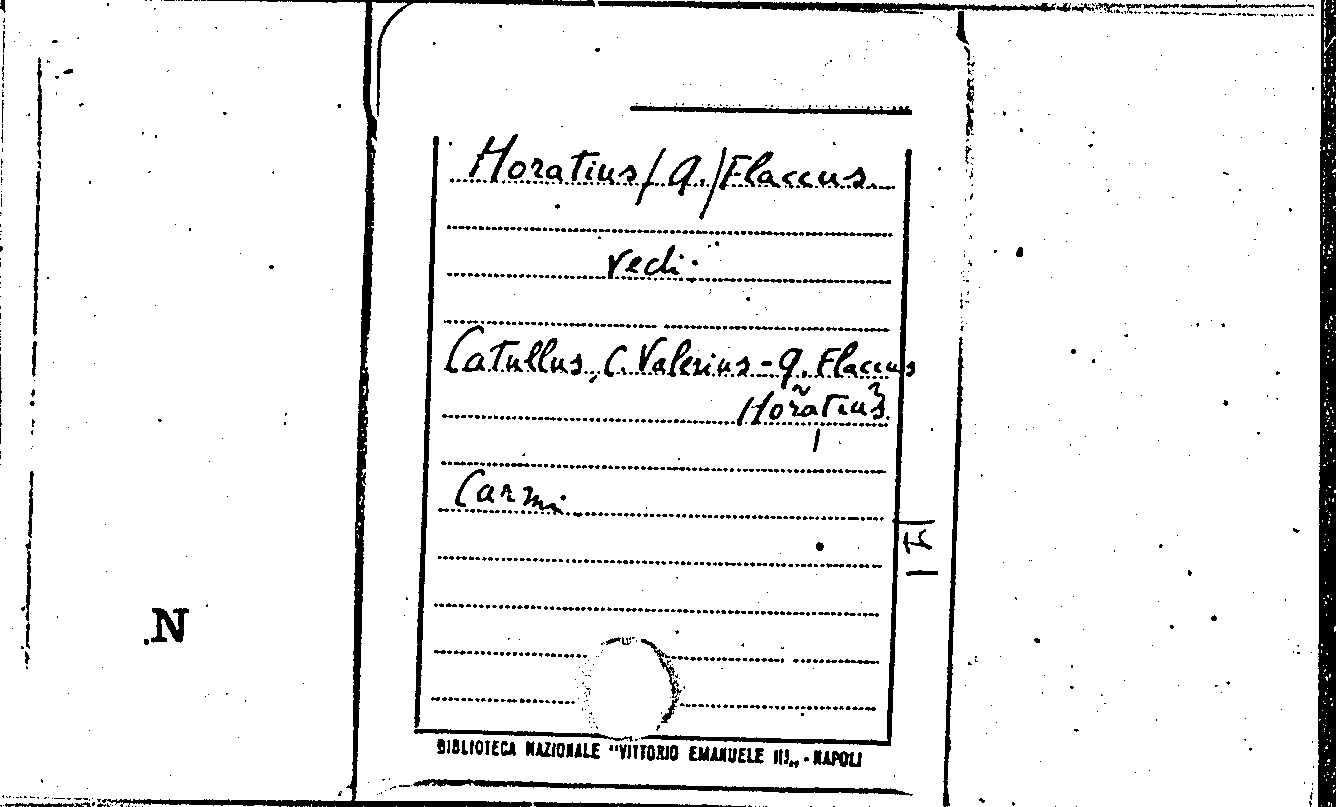 Horatius / Q. / Flaccus
vedi:
Catullus, C. Valerius - Q. Flaccus
Horatius
Carmi
N
BIBLIOTECA NAZIONALE "VITTORIO EMANUELE III„ - NAPOLI